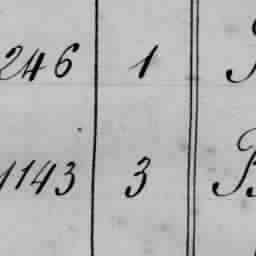 246 1
1143 3 B